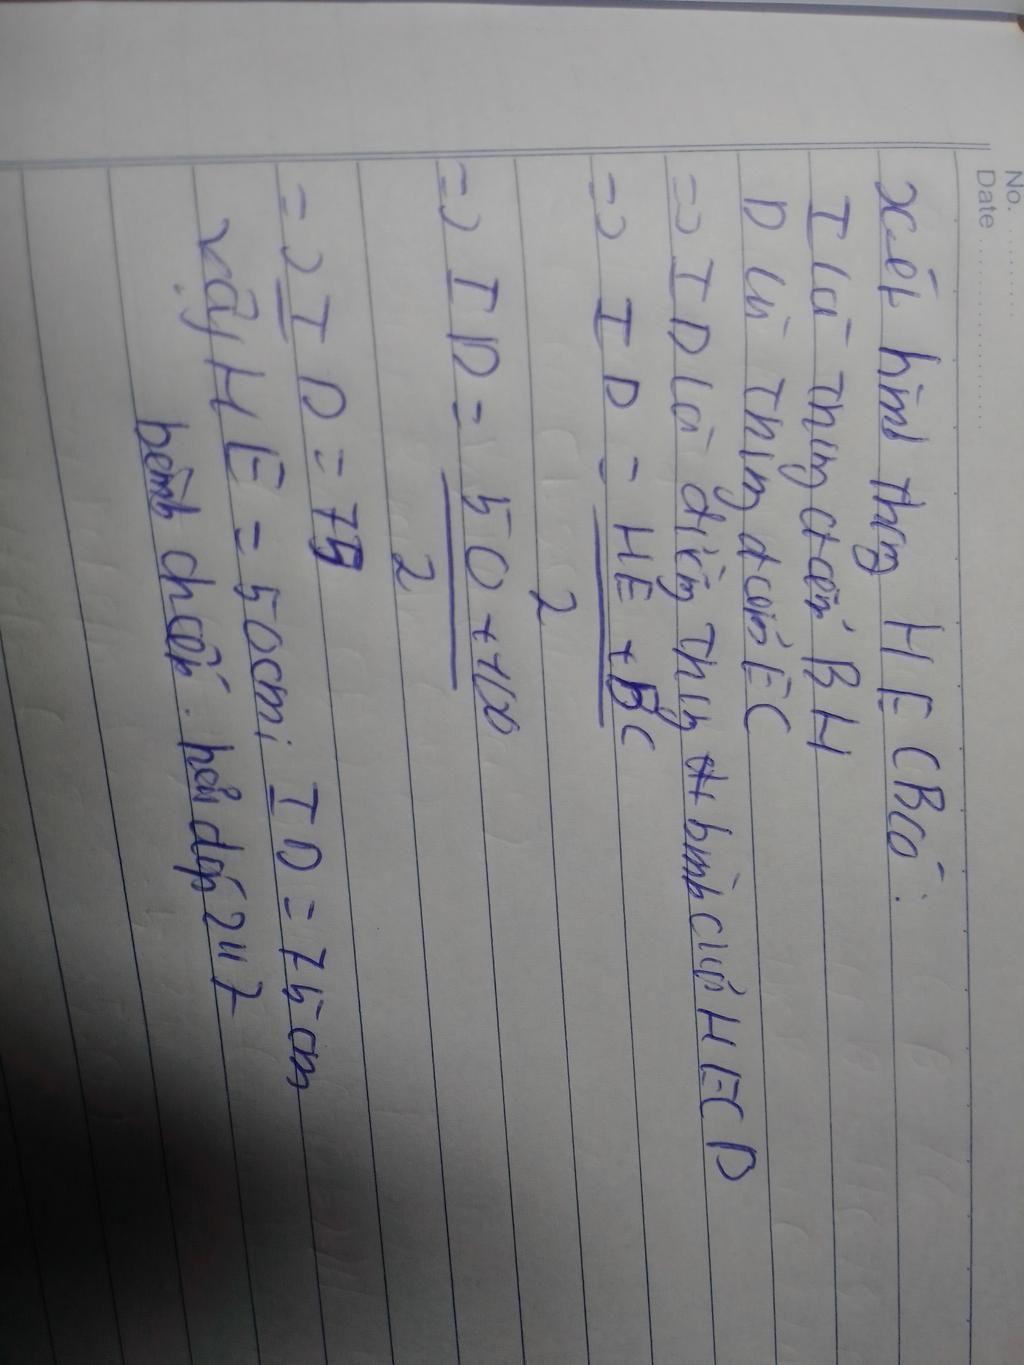 No.
Date
Xét hình thang HECB có:
I là Thung điểm BH
D là Thung điểm EC
=> ID là điểm Thung bình của HECB
=> ID = HE + BC
2
=> ID = 50 + 100
2
=> ID = 75
Vậy HE = 50cm; ID = 75cm